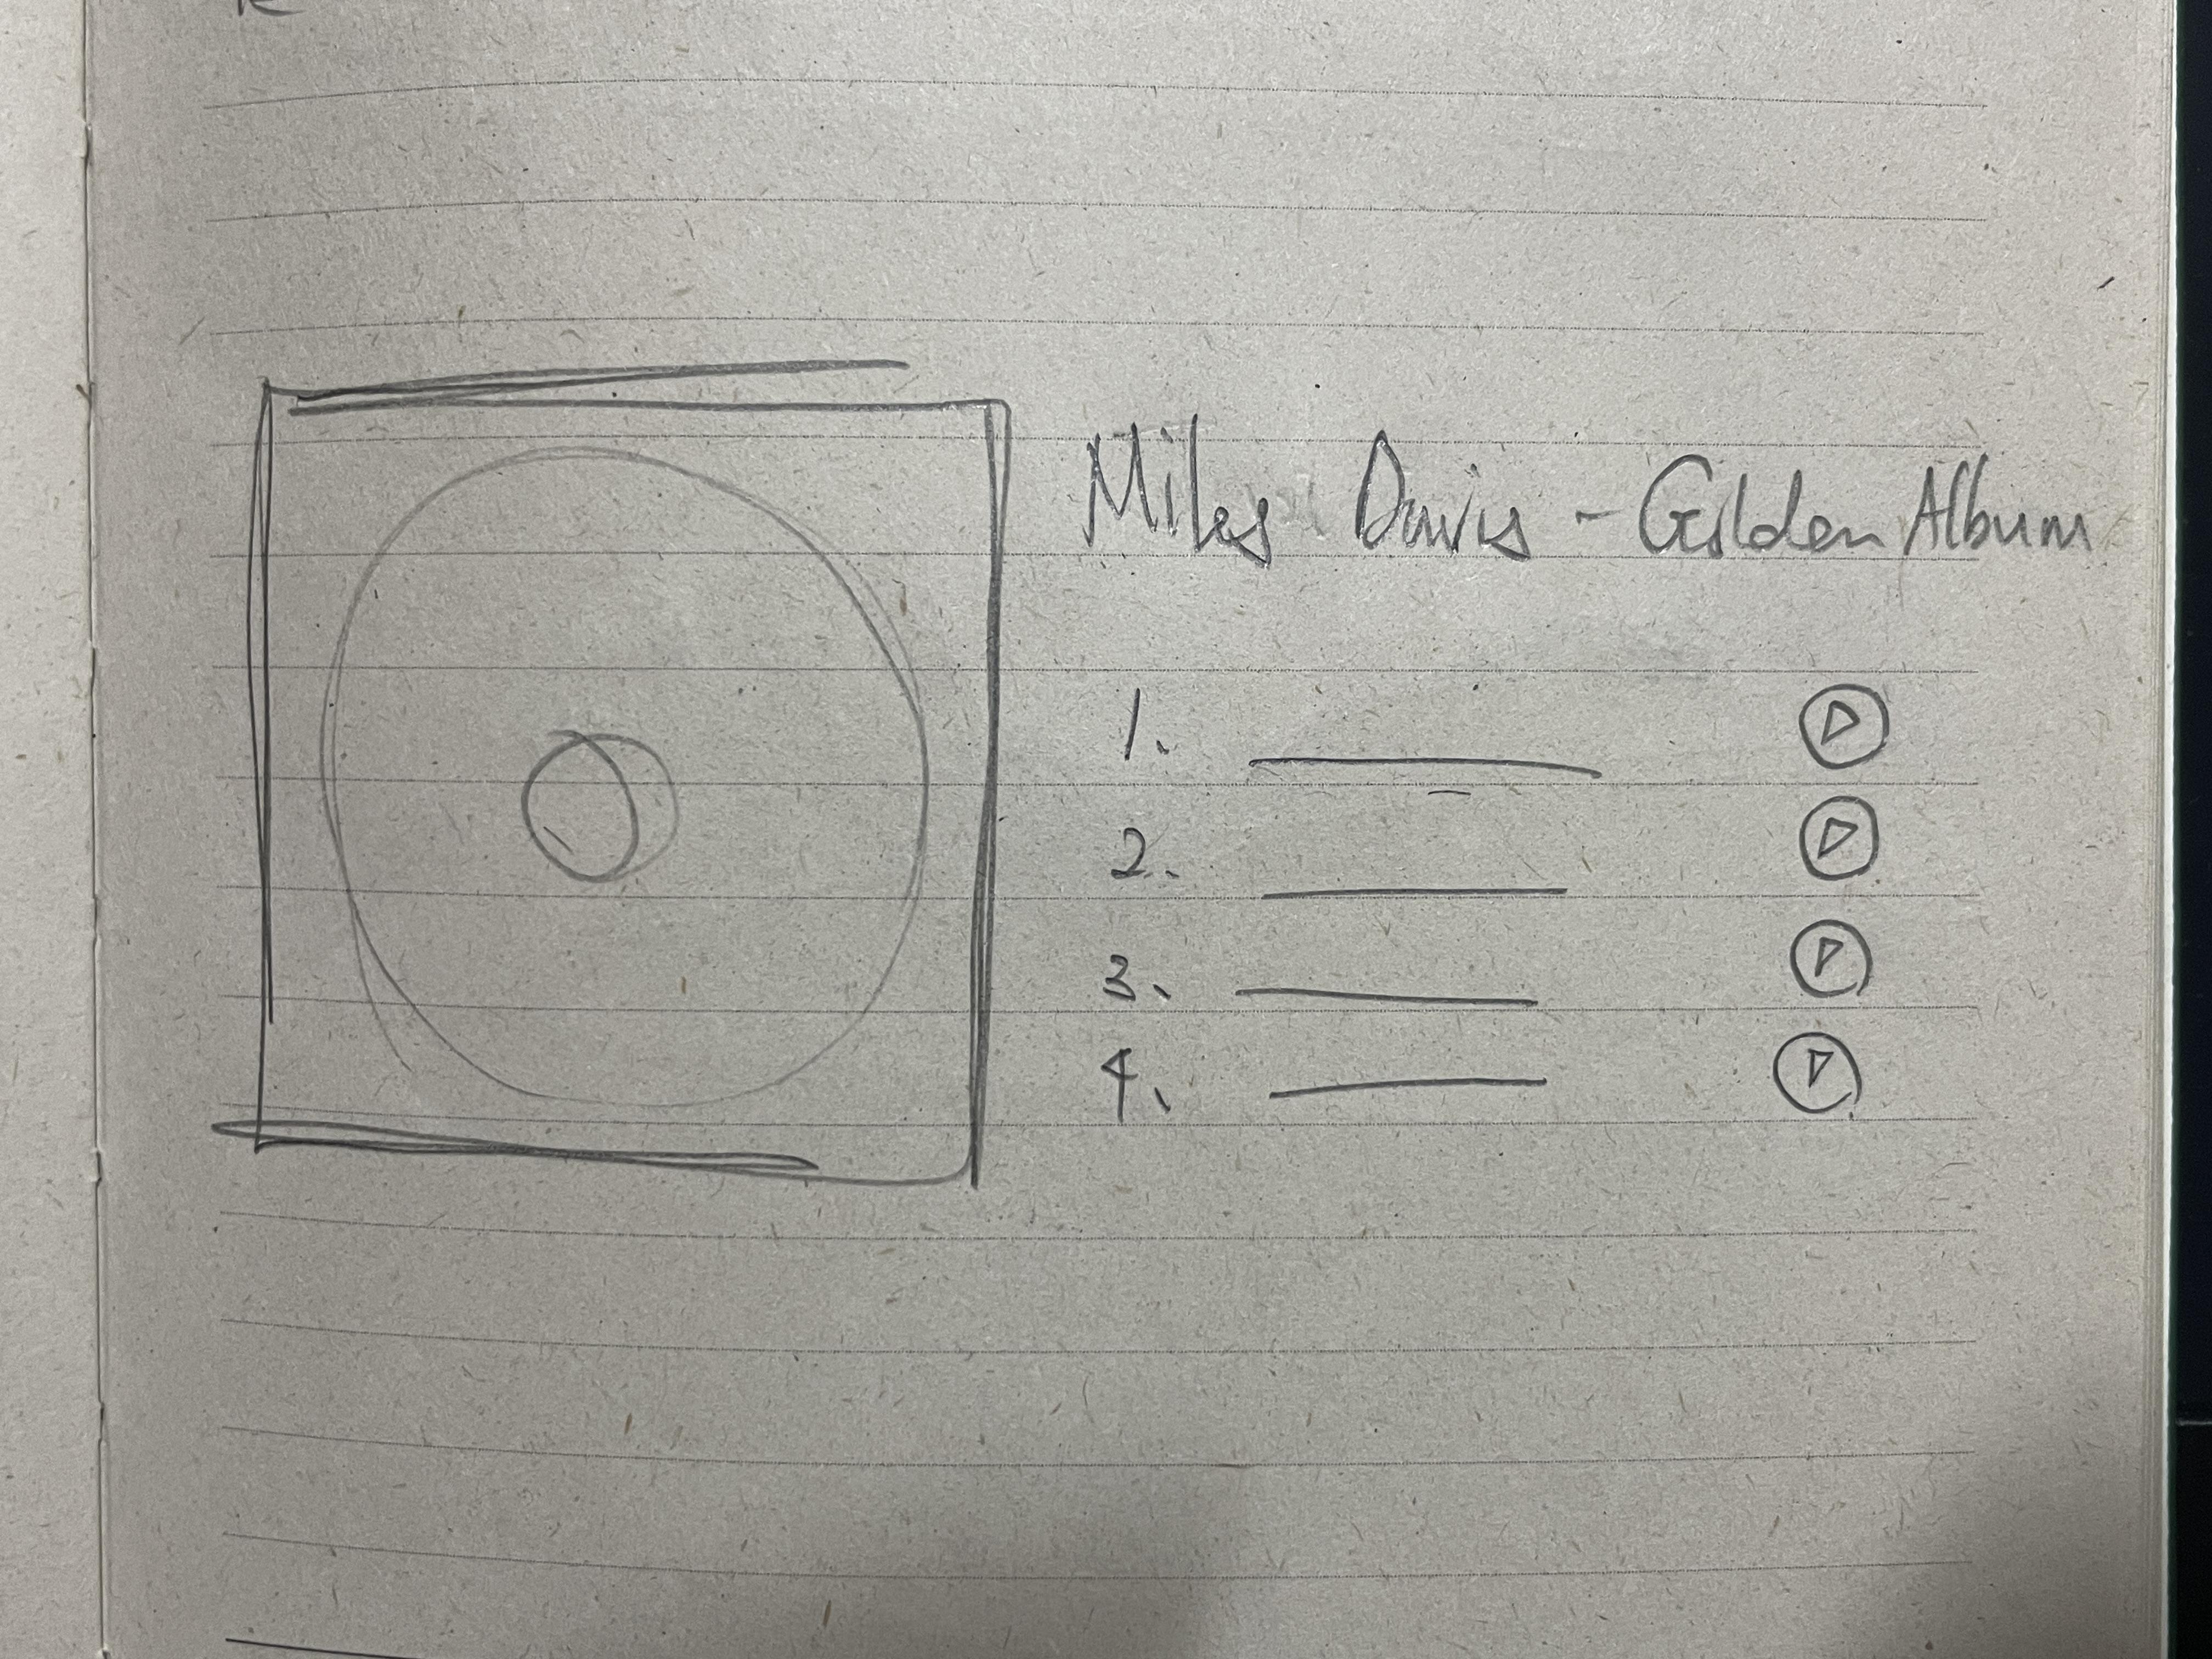 Miles Davis - Golden Album
1.
2.
3.
4.